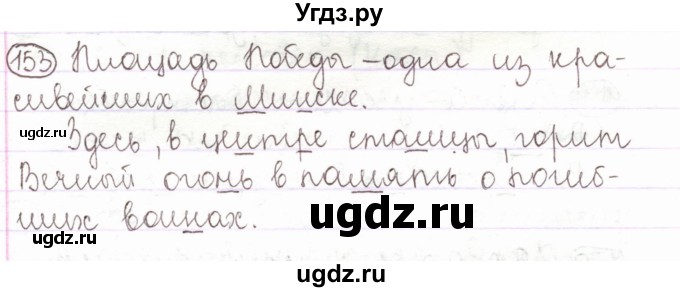 Угдз.ру
153 Площадь Победы – одна из кра-
сивейших в Минске.
ugdz.ru
ugdz.ru
Здесь, в центре столицы, горит
Вечный огонь в память о погиб-
ших воинах.
ugdz.ru
ugdz.ru
ugdz.ru